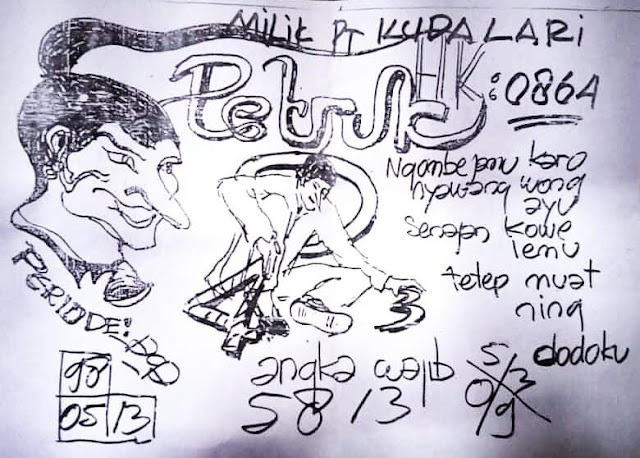 MILIK PT KUDA LARI
Petruk
HK: 0864
Ngombe pmu karo
nyawang wong
ayu
Senajan kowe
lemu
tetep muat
ning
dodoku
PERIODE:
4
3
98
05 13
angka wajib
58 13
5/3
0/9